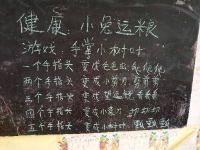 健康:小兔运粮
游戏:手掌小树叶
一个手指头 变成毛毛虫 爬爬爬
二个手指头 变成小剪刀 剪剪剪
三个手指头 变成
四个手指头 变成
五个手指头 变成小树叶 飘飘飘